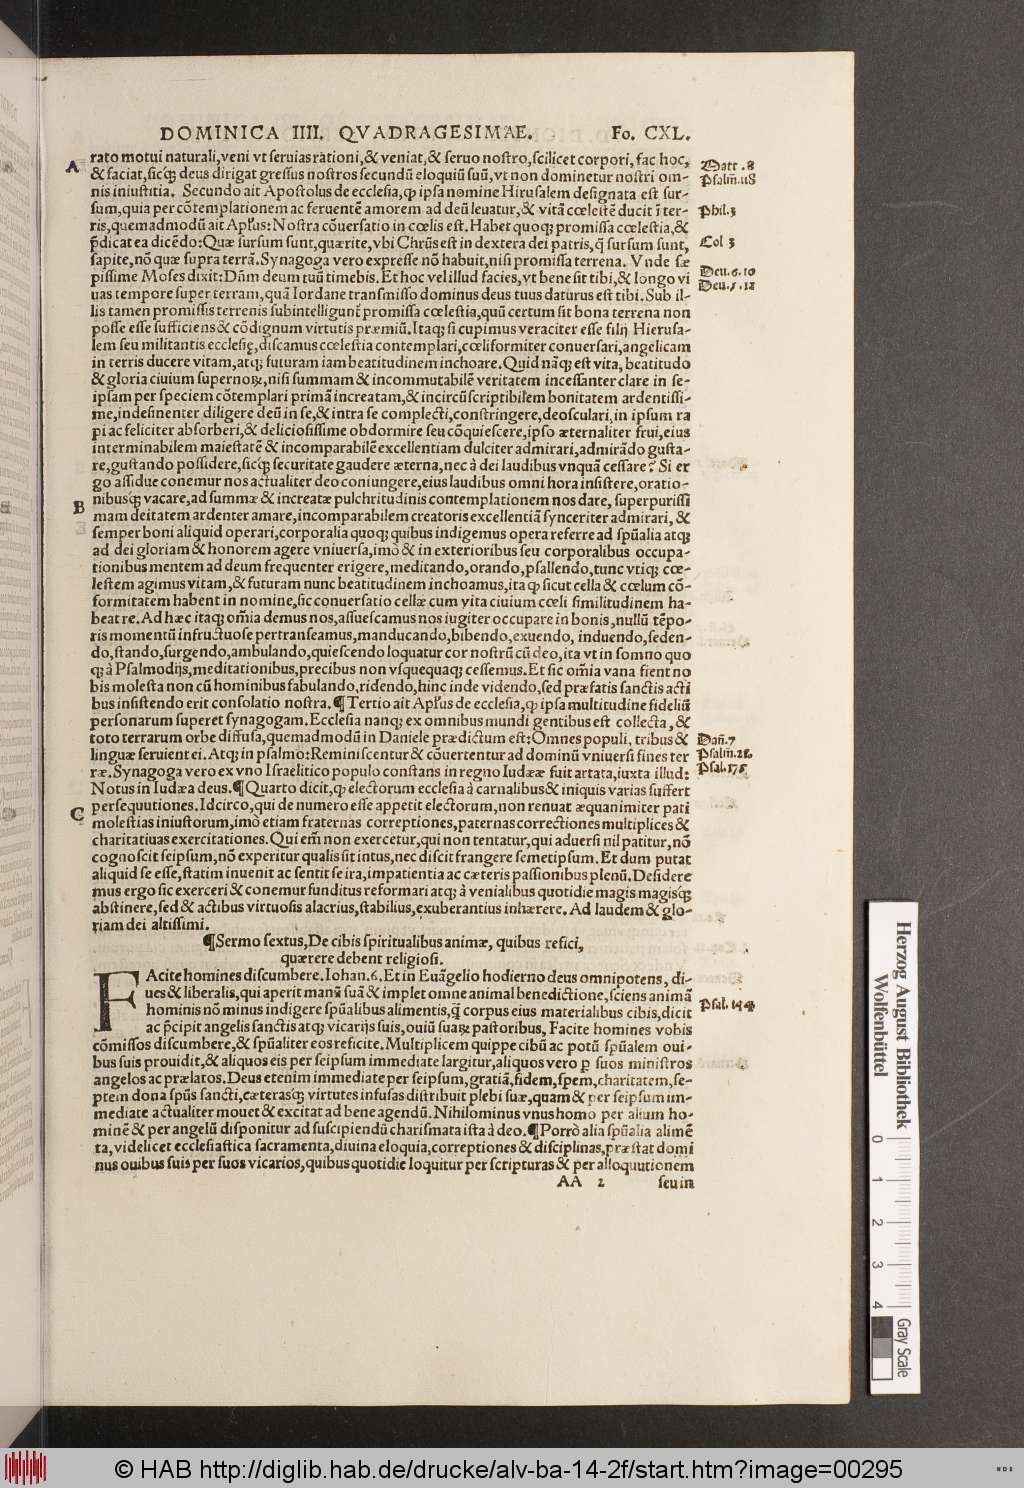 DOMINICA IIII. QVADRAGESIMAE. Fo. CXL.
A rato motui naturali,veni vt seruias rationi,& veniat,& seruo nostro,scilicet corpori, fac hoc, Matt .8
& faciat,sicq; deus dirigat gressus nostros secundũ eloquiũ suũ,vt non dominetur nostri om- Psalm̃.118
nis iniustitia. Secundo ait Apostolus de ecclesia,ꝙ ipsa nomine Hirusalem designata est sur-
sum,quia per cõtemplationem ac feruentẽ amorem ad deũ leuatur,& vitã cœlestẽ ducit ĩ ter- Phil.3
ris,quemadmodũ ait Apl'us: Nostra cõuersatio in cœlis est. Habet quoq; promissa cœlestia,&
p̃dicat ea dicẽdo: Quæ sursum sunt,quærite,vbi Chrũs est in dextera dei patris,q̃ sursum sunt, Col 3
sapite,nõ quæ supra terrã. Synagoga vero expresse nõ habuit,nisi promissa terrena. Vnde sæ
pissime Moses dixit: Dñm deum tuũ timebis. Et hoc vel illud facies,vt bene sit tibi,& longo vi Deu.6.10
uas tempore super terram,quã Iordane transmisso dominus deus tuus daturus est tibi. Sub il- Deu.5.12
lis tamen promissis terrenis subintelligunt̃ promissa cœlestia,quũ certum sit bona terrena non
posse esse sufficiens & cõdignum virtutis præmiũ. Itaq; si cupimus veraciter esse filij Hierusa-
lem seu militantis ecclesię,discamus cœlestia contemplari,cœliformiter conuersari,angelicam
in terris ducere vitam,atq; futuram iam beatitudinem inchoare. Quid nãq; est vita, beatitudo
& gloria ciuium supernoꝝ,nisi summam & incommutabilẽ veritatem incessanter clare in se-
ipsam per speciem cõtemplari primã increatam,& incircũscriptibilem bonitatem ardentissi-
me,indesinenter diligere deũ in se,& intra se complecti,constringere,deosculari,in ipsum ra
pi ac feliciter absorberi,& deliciosissime obdormire seu cõquiescere,ipso æternaliter frui,eius
interminabilem maiestatẽ & incomparabilẽ excellentiam dulciter admirari,admirãdo gusta-
re,gustando possidere,sicq; securitate gaudere æterna,nec à dei laudibus vnquã cessare? Si er
go assidue conemur nos actualiter deo coniungere,eius laudibus omni hora insistere,oratio-
B nibusq; vacare,ad summæ & increatæ pulchritudinis contemplationem nos dare, superpurissi
mam deitatem ardenter amare,incomparabilem creatoris excellentiã synceriter admirari, &
semper boni aliquid operari,corporalia quoq; quibus indigemus opera referre ad spũalia atq;
ad dei gloriam & honorem agere vniuersa,imò & in exterioribus seu corporalibus occupa-
tionibus mentem ad deum frequenter erigere,meditando,orando,psallendo,tunc vtiq; cœ-
lestem agimus vitam,& futuram nunc beatitudinem inchoamus,ita ꝙ sicut cella & cœlum cõ-
formitatem habent in nomine,sic conuersatio cellæ cum vita ciuium cœli similitudinem ha-
beat re. Ad hæc itaq; om̃ia demus nos,assuescamus nos iugiter occupare in bonis,nullũ tẽpo-
ris momentũ infructuose pertranseamus,manducando,bibendo,exuendo, induendo,seden-
do,stando,surgendo,ambulando,quiescendo loquatur cor nostrũ cũ deo,ita vt in somno quo
q; à Psalmodijs,meditationibus,precibus non vsquequaq; cessemus. Et sic om̃ia vana fient no
bis molesta non cũ hominibus fabulando,ridendo,hinc inde videndo,sed præfatis sanctis acti
bus insistendo erit consolatio nostra. ¶ Tertio ait Apl'us de ecclesia,ꝙ ipsa multitudine fideliũ
personarum superet synagogam. Ecclesia nanq; ex omnibus mundi gentibus est collecta, &
toto terrarum orbe diffusa,quemadmodũ in Daniele prædictum est: Omnes populi, tribus & Dañ.7
linguæ seruient ei. Atq; in psalmo: Reminiscentur & cõuertentur ad dominũ vniuersi fines ter Psalm̃.21.
ræ. Synagoga vero ex vno Israelitico populo constans in regno Iudææ fuit artata,iuxta illud: Psal.175.
Notus in Iudæa deus. ¶ Quarto dicit,ꝙ electorum ecclesia à carnalibus & iniquis varias suffert
C persequutiones. Idcirco,qui de numero esse appetit electorum,non renuat æquanimiter pati
molestias iniustorum,imò etiam fraternas correptiones,paternas correctiones multiplices &
charitatiuas exercitationes. Qui em̃ non exercetur,qui non tentatur,qui aduersi nil patitur,nõ
cognoscit seipsum,nõ experitur qualis sit intus,nec discit frangere semetipsum. Et dum putat
aliquid se esse,statim inuenit ac sentit se ira,impatientia ac cæteris passionibus plenũ. Desidere
mus ergo sic exerceri & conemur funditus reformari atq; à venialibus quotidie magis magisq;
abstinere,sed & actibus virtuosis alacrius,stabilius,exuberantius inhærere. Ad laudem & glo-
riam dei altissimi.
¶ Sermo sextus,De cibis spiritualibus animæ, quibus refici,
quærere debent religiosi.
FAcite homines discumbere. Iohan.6. Et in Euãgelio hodierno deus omnipotens, di-
ues & liberalis,qui aperit manũ suã & implet omne animal benedictione,sciens animã Psal.144
hominis nõ minus indigere spũalibus alimentis,q̃ corpus eius materialibus cibis,dicit
ac p̃cipit angelis sanctis atq; vicarijs suis,ouiũ suaꝝ pastoribus, Facite homines vobis
cõmissos discumbere,& spũaliter eos reficite. Multiplicem quippe cibũ ac potũ spũalem oui-
bus suis prouidit,& aliquos eis per seipsum immediate largitur,aliquos vero ꝑ suos ministros
angelos ac prælatos. Deus etenim immediate per seipsum,gratiã,fidem,spem,charitatem,se-
ptem dona spũs sancti,cæterasq; virtutes infusas distribuit plebi suæ,quam & per seipsum im-
mediate actualiter mouet & excitat ad bene agendũ. Nihilominus vnus homo per alium ho-
minẽ & per angelũ disponitur ad suscipiendũ charismata ista à deo. ¶ Porrò alia spũalia alimẽ
ta,videlicet ecclesiastica sacramenta,diuina eloquia,correptiones & disciplinas,præstat domi
nus ouibus suis per suos vicarios,quibus quotidie loquitur per scripturas & per alloquutionem
AA 2 seu in
Herzog August Bibliothek
Wolfenbüttel
0 1 2 3 4
Gray Scale
© HAB http://diglib.hab.de/drucke/alv-ba-14-2f/start.htm?image=00295